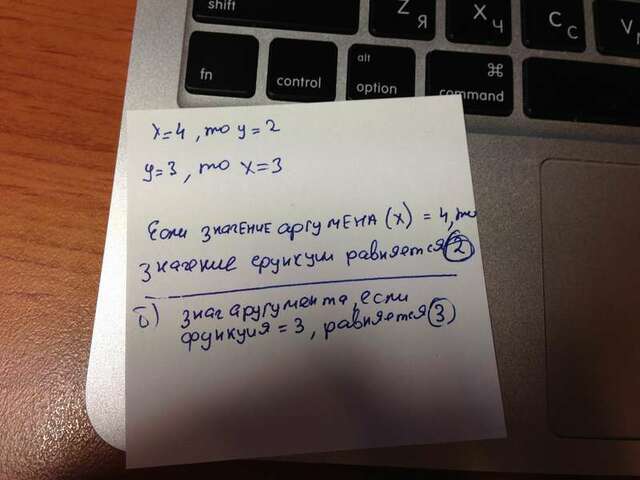 shift
Z Я
X Ч
C С
V
fn
control
alt
option
⌘
command
x=4, то y=2
y=3, то x=3
Если значение аргумена (x) = 4, то
значение функции равняется 2
б) знач аругумента, если
функция = 3, равняется 3